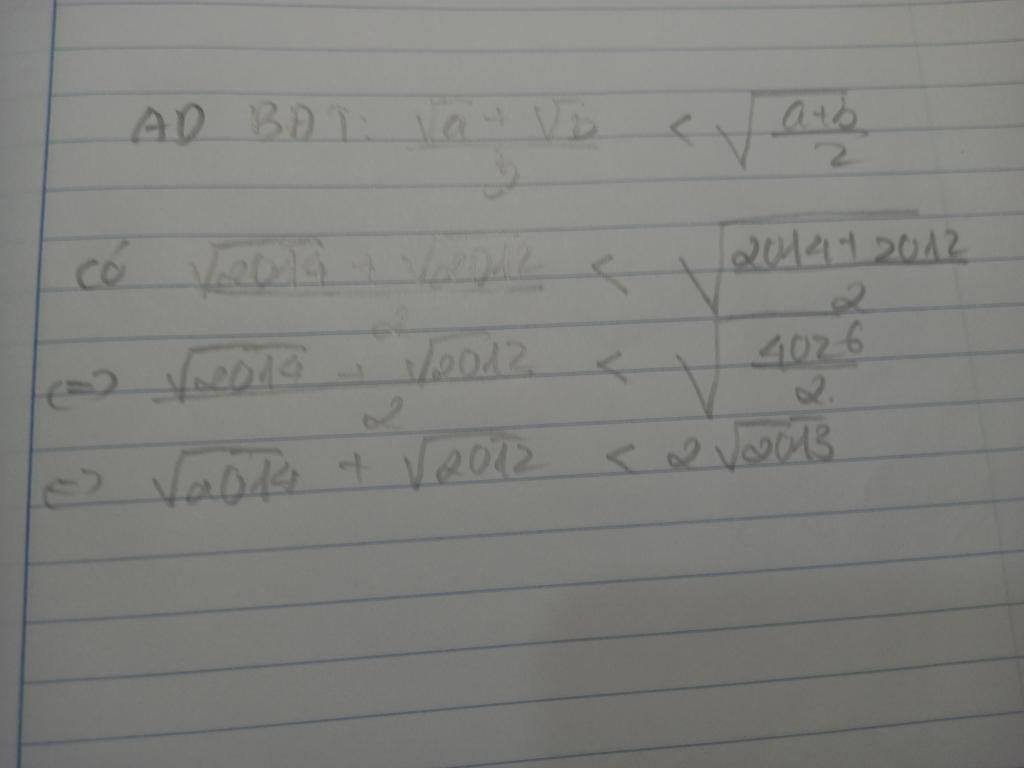 AD BĐT: √a + √b / 2 < √(a+b / 2)
có √2014 + √2012 / 2 < √(2014 + 2012 / 2)
<=> √2014 + √2012 / 2 < √(4026 / 2)
<=> √2014 + √2012 < 2√2013